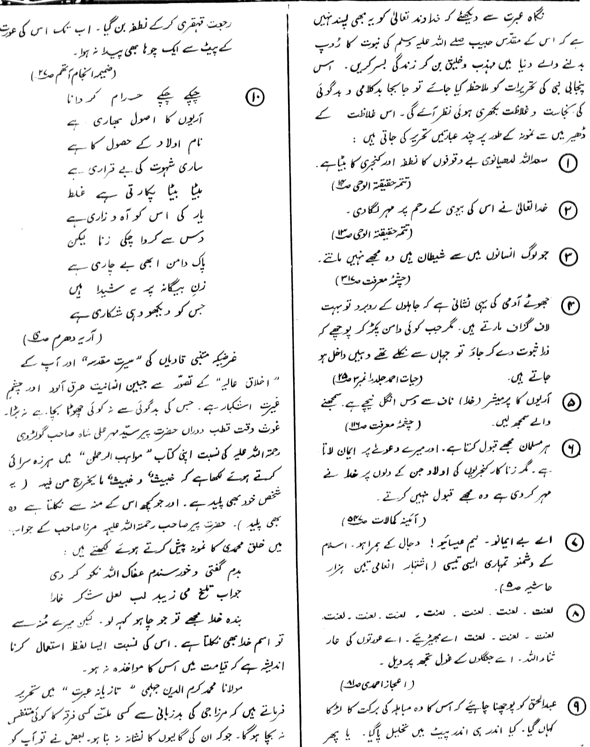 نگاہ عبرت سے دیکھئے کہ خداوند تعالیٰ کو یہ بھی پسند نہیں
ہے کہ اس کے مقدس حبیب صلے اللہ علیہ وسلم کی نبوت کا رُوپ
بدلنے والے دنیا میں مہذب و خلیق بن کر زندگی بسر کریں۔ اس
پنجابی نبی کی تحریرات کو ملاحظہ کیا جائے تو جا بجا بدکلامی و بدگوئی
کی نجاست و غلاظت بکھری ہوئی نظر آئے گی۔ اس غلاظت کے
ڈھیر میں سے نمونہ کے طور پر چند عبارتیں تحریر کی جاتی ہیں :
① سعد اللہ لدھیانوی بے وقوفوں کا نطفہ اور کنجری کا بیٹا ہے۔
(تتمہ حقیقتہ الوحی ص۱۴)
② خدا تعالیٰ نے اس کی بیوی کے رحم پر مہر لگا دی۔
(تتمہ حقیقتہ الوحی ص۱۳)
③ جو لوگ انسانوں میں سے شیطان ہیں وہ مجھے نہیں مانتے۔
(چشمۂ معرفت ص۳۱۷)
④ جھوٹے آدمی کی یہی نشانی ہے کہ جاہلوں کے روبرو تو بہت
لاف گزاف مارتے ہیں۔ مگر جب کوئی دامن پکڑ کر پوچھے کہ
ذرا ثبوت دے کر جاؤ تو جہاں سے نکلے تھے وہیں داخل ہو
جاتے ہیں۔ (حیات احمد جلد۱ نمبر۳ ص۲۵)
⑤ آریوں کا پرمیشر (خدا) ناف سے دس انگل نیچے ہے۔ سمجھنے
والے سمجھ لیں۔ (چشمۂ معرفت ص۱۱۶)
⑥ ہر مسلمان مجھے قبول کرتا ہے۔ اور میرے دعوے پر ایمان لاتا
ہے۔ مگر زنا کار کنجریوں کی اولاد جن کے دلوں پر خدا نے
مہر کر دی ہے وہ مجھے قبول نہیں کرتے۔
(آئینۂ کمالات ص۵۴۷)
⑦ اے بے ایمانو۔ نیم عیسائیو! دجال کے ہمراہو۔ اسلام
کے دشمنو تمہاری ایسی تیسی (اشتہار انعامی تین ہزار
حاشیہ ص۵)۔
⑧ لعنت۔ لعنت۔ لعنت۔ لعنت۔ لعنت۔ لعنت۔ لعنت۔
لعنت۔ لعنت۔ لعنت اے بھیڑیئے۔ اے عورتوں کی عار
ثناء اللہ۔ اے جنگلوں کے غول تجھ پر ویل۔
(اعجاز احمدی ص)
⑨ عبدالحق کو پوچھنا چاہیئے کہ اس کا وہ مباہلہ کی برکت کا لڑکا
کہاں گیا۔ کیا اندر ہی اندر پیٹ میں تحلیل پا گیا۔ یا پھر
رجعت قہقری کرکے نطفہ بن گیا۔ اب تک اس کی عورت
کے پیٹ سے ایک چوہا بھی پیدا نہ ہوا۔
(ضمیمہ انجام آتھم ص۲۷)
⑩ چپکے چپکے حرام کروانا
آریوں کا اصول بھاری ہے
نام اولاد کے حصول کا ہے
ساری شہوت کی بے قراری ہے
بیٹا بیٹا پکارتی ہے غلط
یار کی اس کو آہ و زاری ہے
دس سے کروا چکی زنا لیکن
پاک دامن ابھی بے چاری ہے
زنِ بیگانہ پر یہ شیدا ہیں
جس کو دیکھو وہی شکاری ہے
(آریہ دھرم ص)
غرضیکہ متنبی قادیاں کی "سیرت مقدسہ" اور آپ کے
"اخلاق عالیہ" کے تصور سے جبین انسانیت عرق آلود اور چشم
غیرت اشکبار ہے۔ جس کی بدگوئی سے نہ کوئی چھوٹا بچا ہے نہ بڑا۔
غوث وقت قطب دوراں حضرت پیر سید مہر علی شاہ صاحب گولڑوی
رحمۃ اللہ علیہ کی نسبت اپنی کتاب "مواہب الرحمٰن" میں ہرزہ سرائی
کرتے ہوئے لکھا ہے کہ خبیثٌ و خبیثٌ ما یخرج من فیہ (یہ
شخص خود بھی پلید ہے۔ اور جو کچھ اس کے منہ سے نکلتا ہے وہ
بھی پلید)۔ حضرت پیر صاحب رحمۃ اللہ علیہ مرزا صاحب کے جواب
میں خلق محمدی کا نمونہ پیش کرتے ہوئے لکھتے ہیں :
بدم گفتی و خورسندم عفاک اللہ نکو کر دی
جواب تلخ می زیبد لب لعل شکر خارا
بندہ خدا مجھے تو جو چاہو کہہ لو۔ لیکن میرے منہ سے
تو اسم خدا بھی نکلتا ہے۔ اس کی نسبت ایسا لفظ استعمال کرنا
اندیشہ ہے کہ قیامت میں اس کا مواخذہ نہ ہو۔
مولانا محمد کرم الدین جہلمی "تازیانۂ عبرت" میں تحریر
فرماتے ہیں کہ مرزا جی کی بدزبانی سے کسی ملت کسی فرقہ کا کوئی متنفس
نہ بچا ہوگا۔ جو کہ ان کی گالیوں کا نشانہ نہ بنا ہو۔ بعض نے تو آپ کو